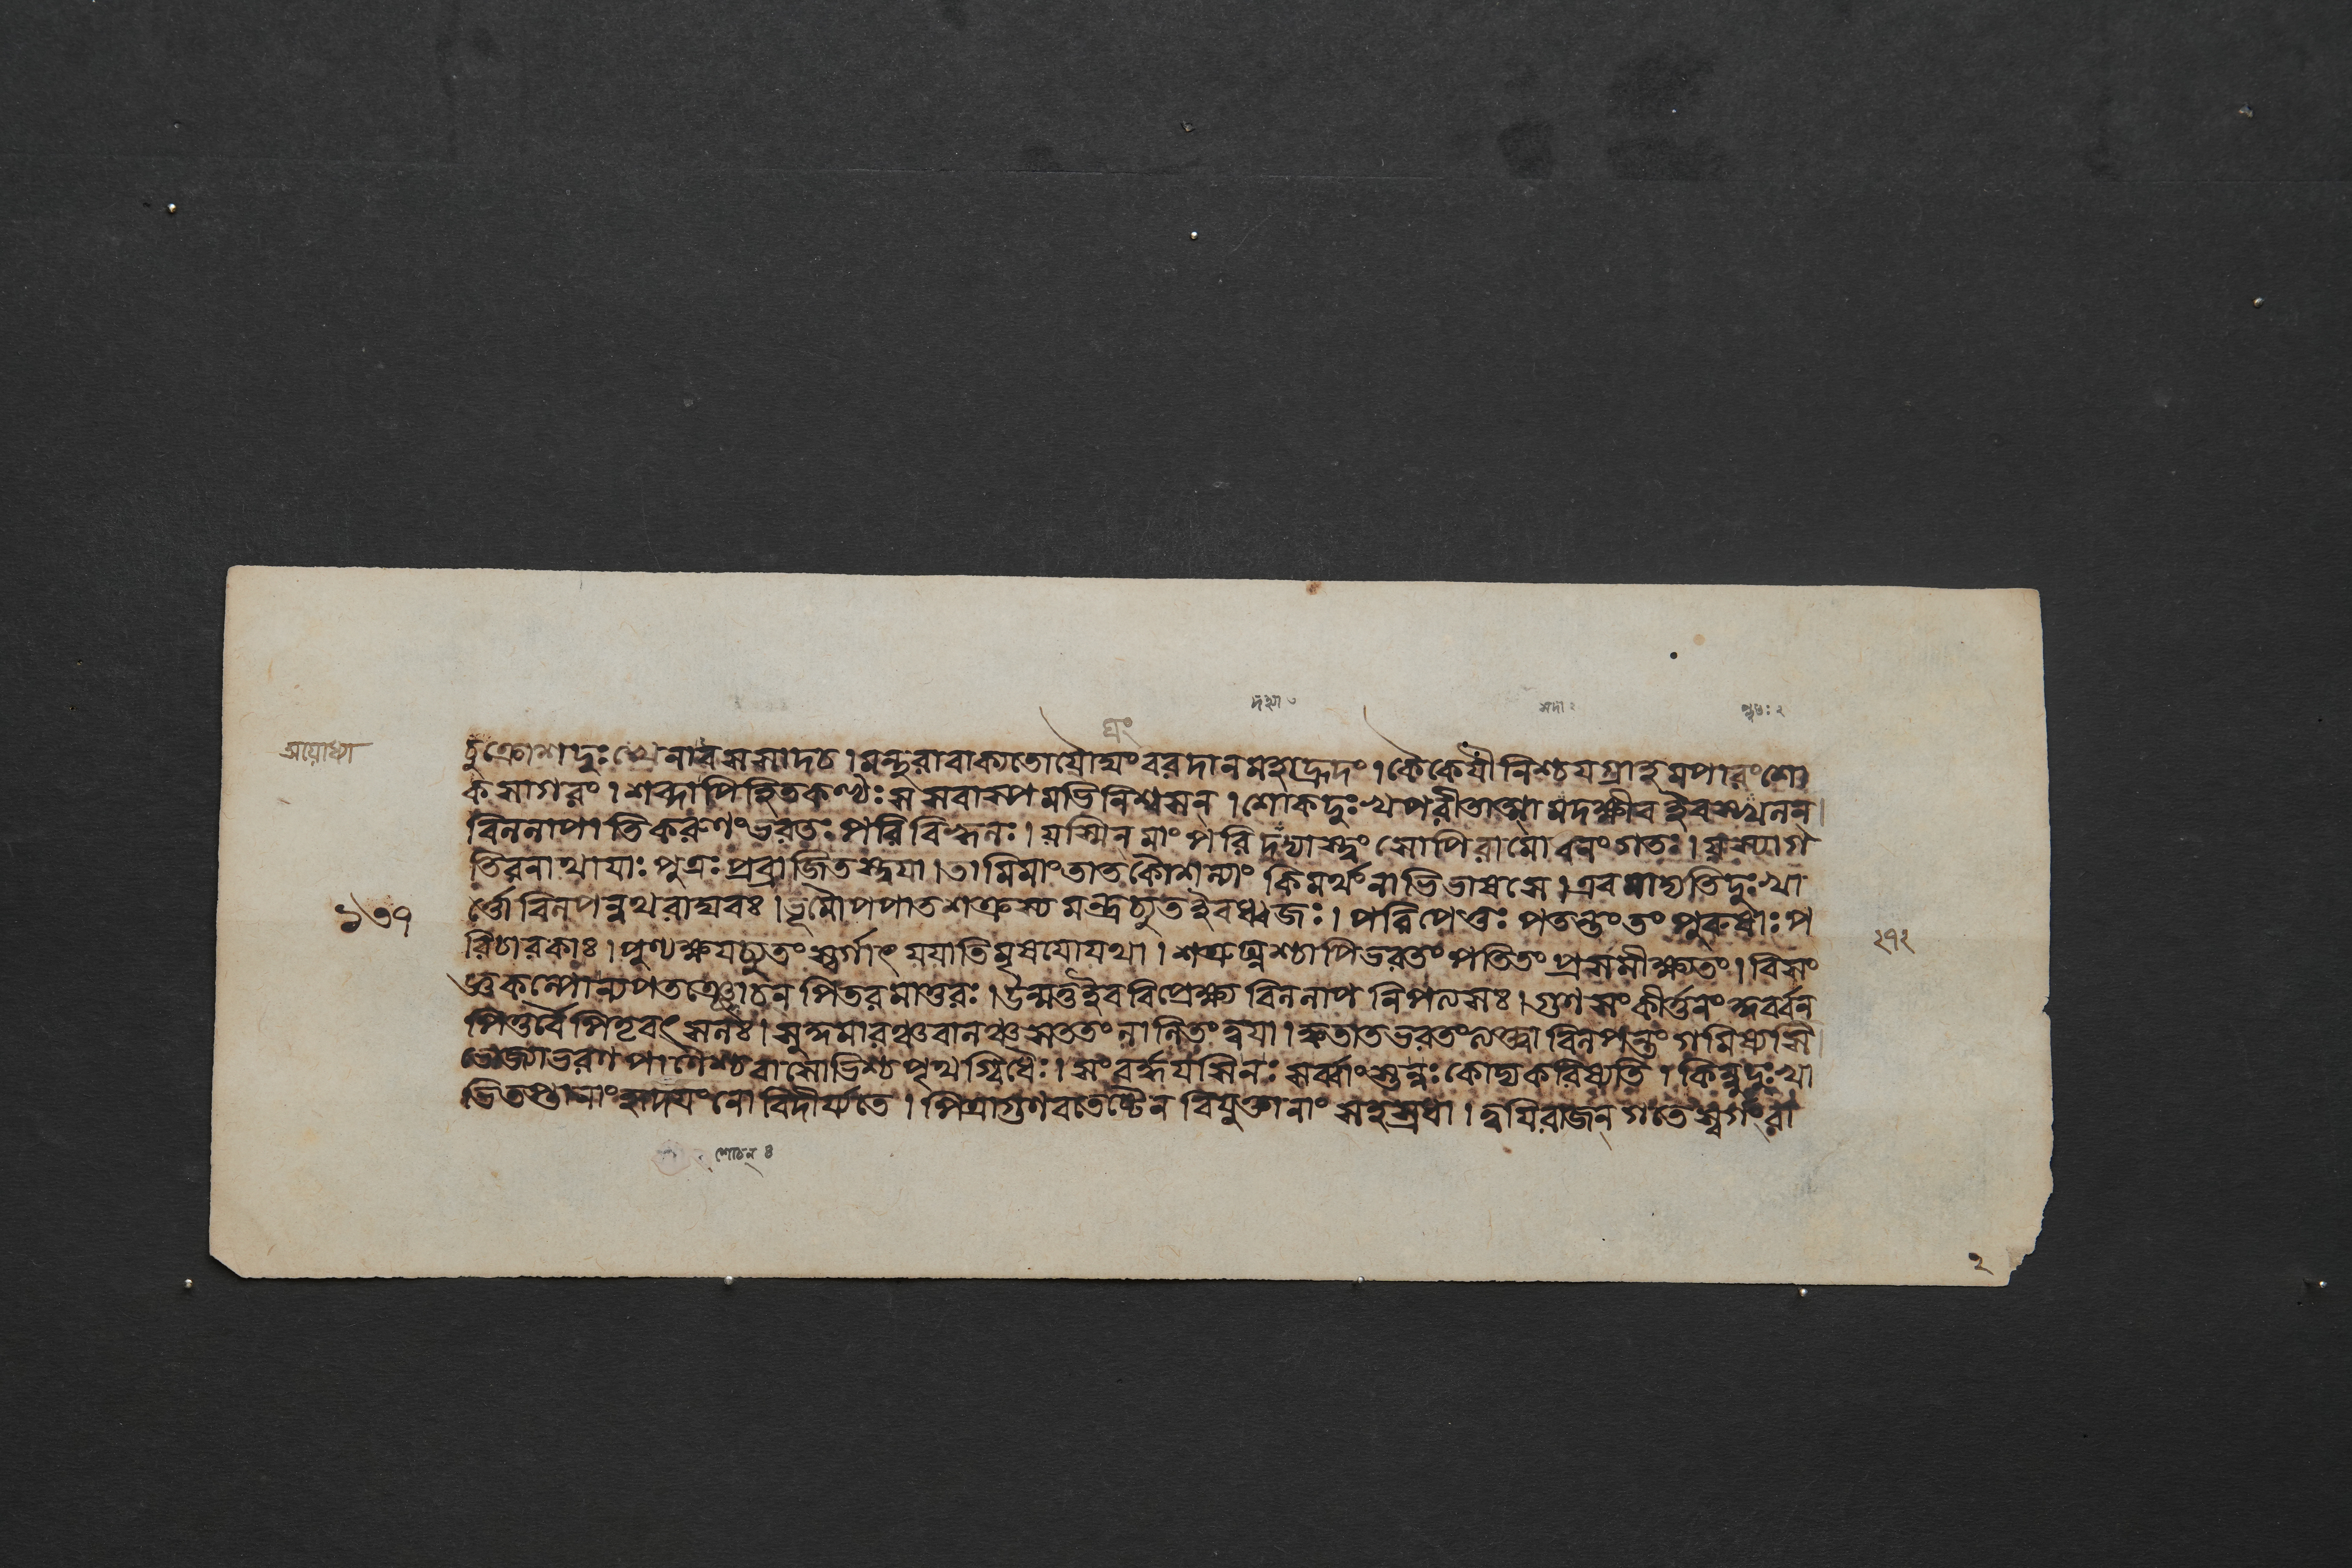 দহ্যা ৩ সদা ২ প্লুতঃ ২
ঘং
অযোধ্যা
চুক্রোশদুঃখেনাবসসাদচ । মন্থরাবাক্যতোযৌঘং বরদানমহাহ্রদং । কৈকেযীনিশ্চযগ্রাহমপারংশো
কসাগরং । শব্দাপিহিতকণ্ঠঃ স সবাস্পমভিনিশ্বসন্ । শোকদুঃখপরীতাত্মা মদক্ষীব ইবস্খলন্
বিললাপাতিকরুণং ভরতঃ পরিবিহ্বলঃ । যস্মিন্ মাং পরি দদ্যাস্ত্বং সোপিরামো বনং গতঃ । যস্যাগ
তিরনাথাযাঃ পুত্রঃ প্রব্রাজিতস্ত্বযা । তামিমাং তাত কৌশল্যাং কিমর্থং নাভিভাষসে । এবমাদ্যতিদুঃখা
র্ত্তো বিলপন্নথ রাঘবঃ । ভূমৌ পপাত শত্রুস্য মন্দ্রচ্যুত ইবধ্বজঃ । পরিপেতুঃ পতন্তং তং পুরুষাঃ প
১৩৭
রিচারকাঃ । পুণ্যক্ষযচ্যুতং স্বর্গাৎ যযাতিমৃষযো যথা । শত্রুঘ্নশ্চাপিভরতং পতিতং প্রসমীক্ষ্যতং । বিসং
২৭২
জ্ঞকল্পোন্যপতত্তঞ্চোচন পিতরমাতুরঃ । উন্মত্ত ইব বিপ্রেক্ষ্য বিললাপ নিপলসঃ । গুণ সংকীর্ত্তনং কুর্ব্বন
পিতুর্ব্বৈ পিতৃবৎসলঃ । সুকুমারঞ্চবালঞ্চ সততং লালিতং ত্বযা । ক্বতাত ভরতং ত্যক্ত্বা বিলপন্তং গমিষ্যসি
ভোজ্যাভরণপানৈশ্চ বাসোভিশ্চ পৃথগ্বিধৈঃ । সংবর্দ্ধযসি নঃ সর্ব্বাংস্তন্নঃ কোদ্য করিষ্যতি । কিন্নুদুঃখা
ভিতপ্তানাং হৃদযং নো বিদীর্য্যতে । পিত্রাগুণবতা তেন বিযুক্তানাং সহস্রধা । ত্বযিরাজন্ গতে স্বর্গং রা
শোচন্ ৪
২